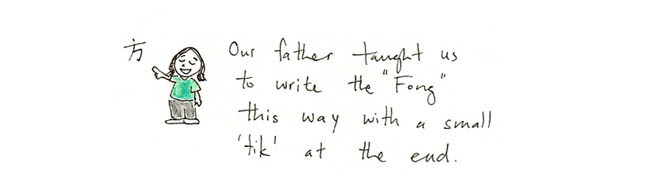 方
Our father taught us
to write the "Fong"
this way with a small
'tik' at the end.